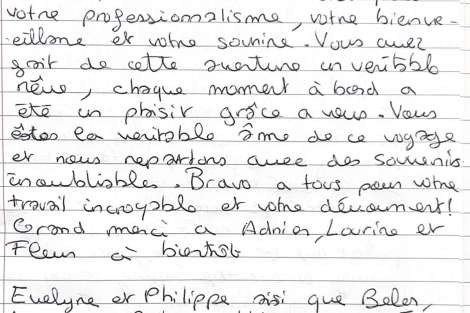 votre professionnalisme, votre bienve-
-eillane et votre sourire. Vous avez
fait de cette aventure un véritable
rêve, chaque moment à bord a
été un plaisir grâce a vous. Vous
êtes la veritable âme de ce voyage
et nous repartons avec des souvenirs
inoubliables. Bravo a tous pour votre
travail incroyable et votre dévouement!
Grand merci a Adrien, Laurine et
Fleur à bientôt
Evelyne et Philippe aisi que Belen,